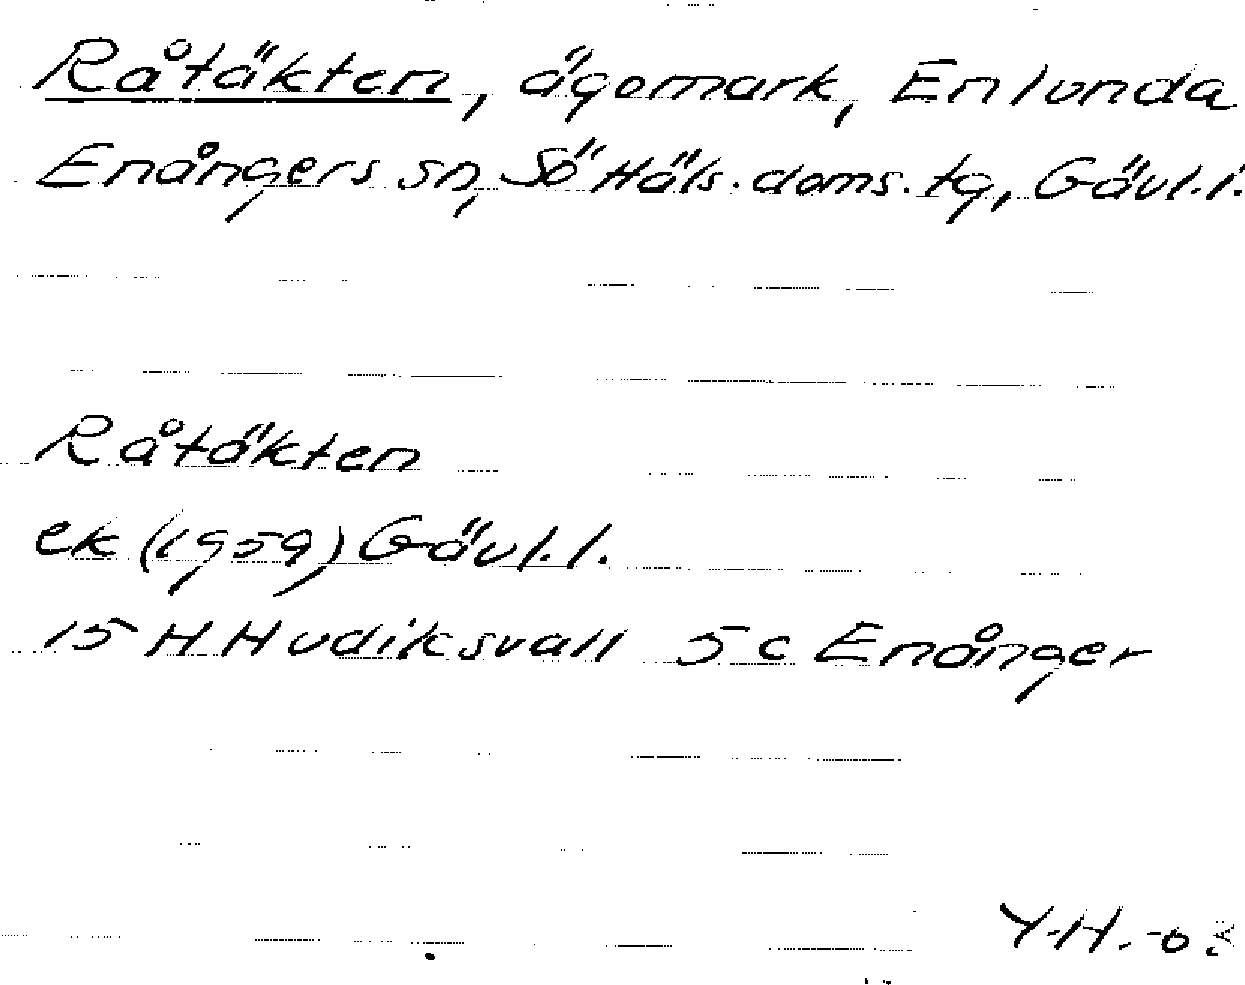 Råtäkten, ägomark, Enlunda
Enångers sn, Sö Häls. doms. tg, Gävl.l.
Råtäkten
ek (1959) Gävl.l.
15 H Hudiksvall 5 c Enånger
Y.H.-o